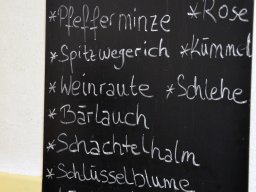 *Pfefferminze *Rose
*Spitzwegerich *Kümmel
*Weinraute *Schlehe
*Bärlauch
*Schachtelhalm
*Schlüsselblume